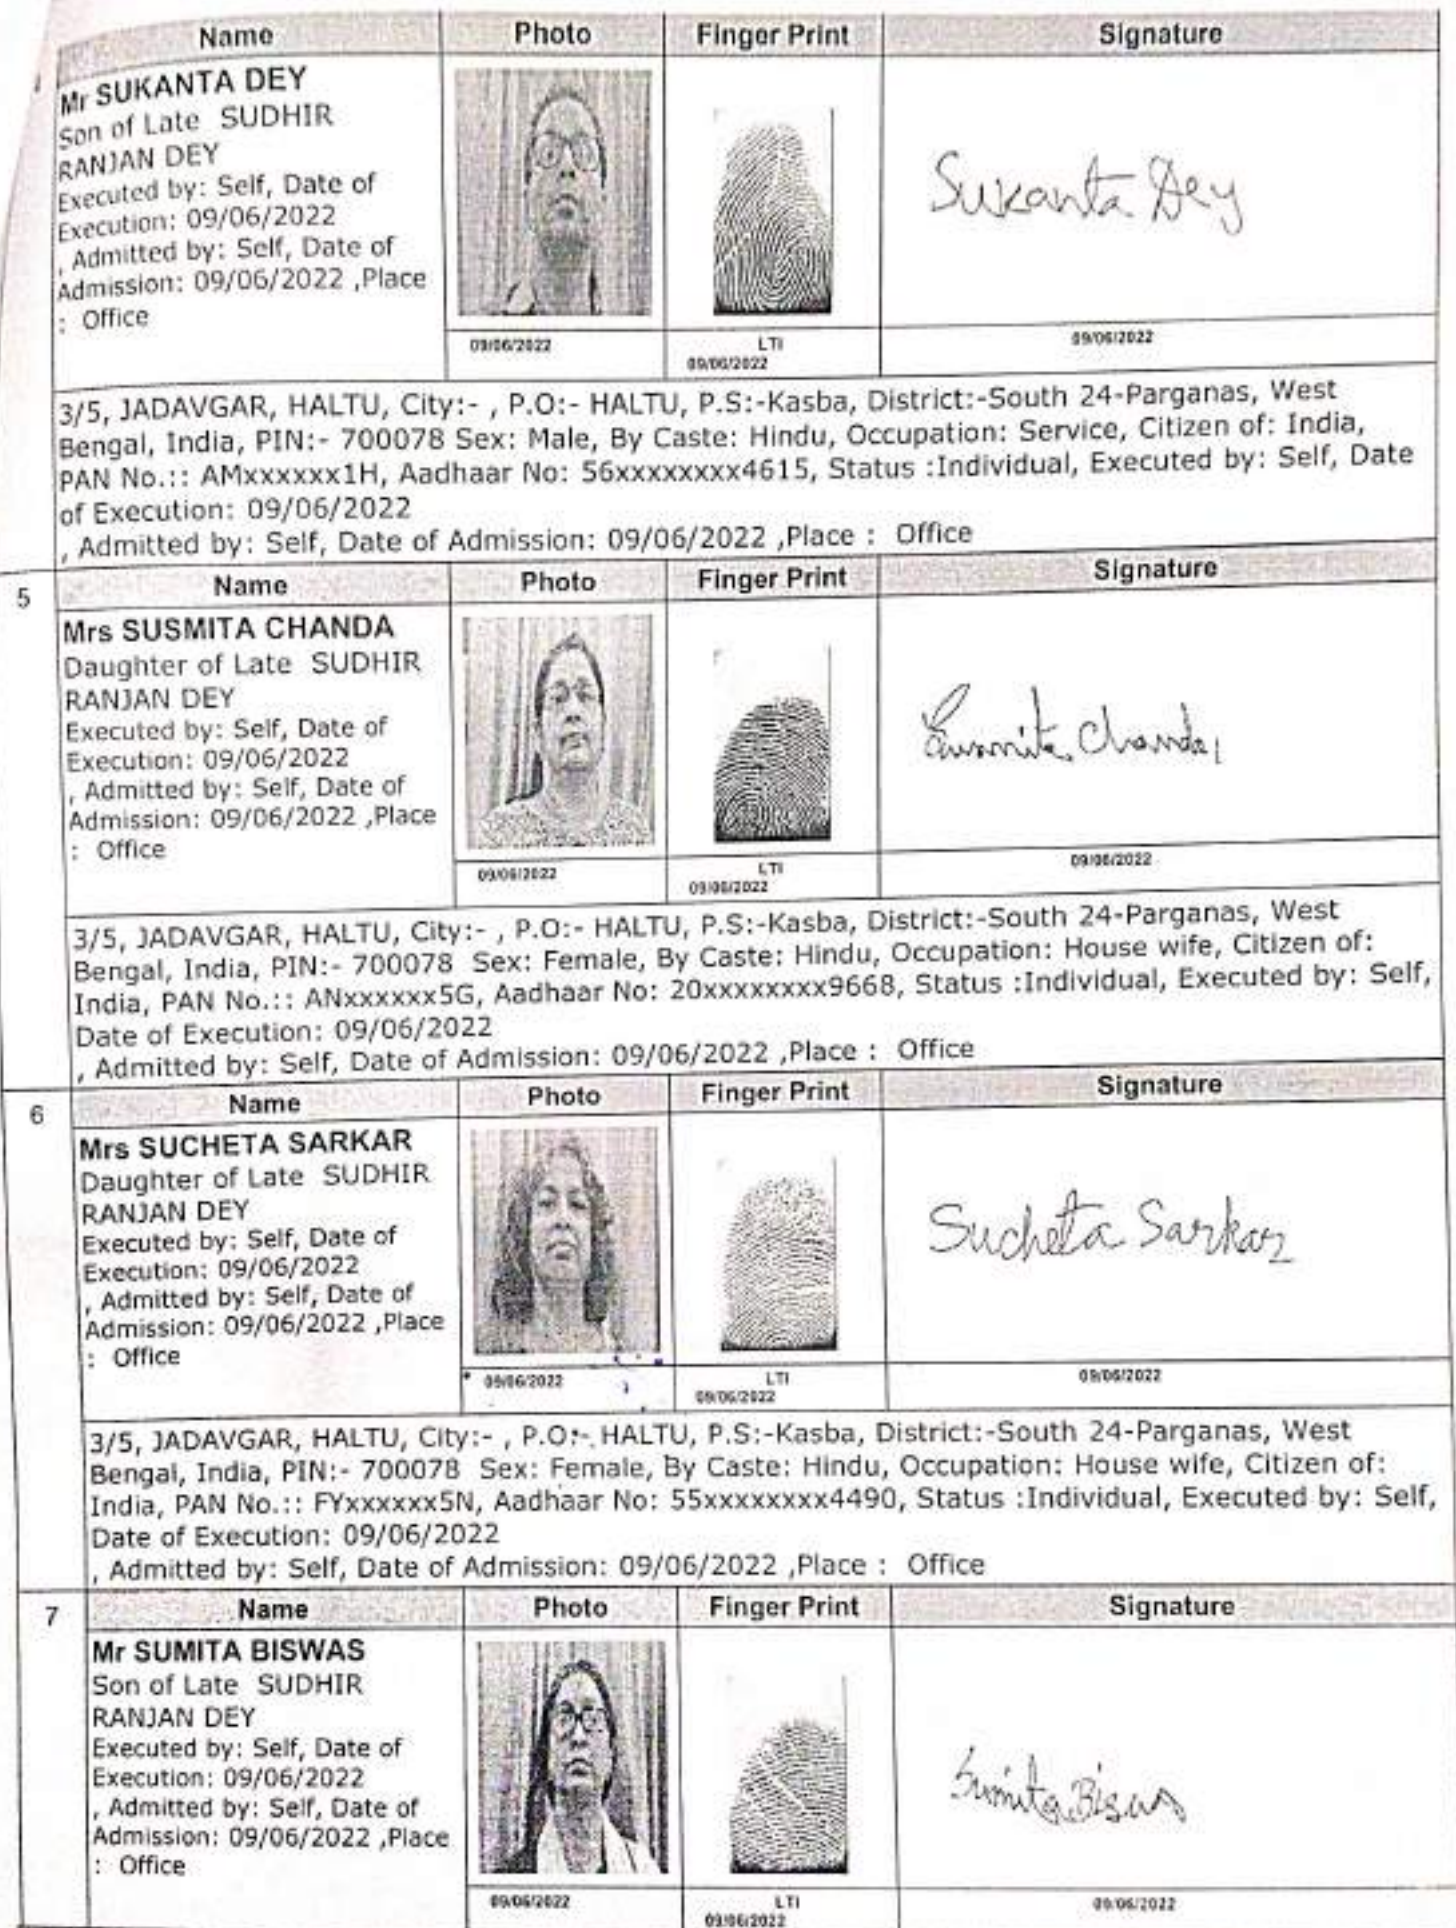 Name Photo Finger Print Signature
Mr SUKANTA DEY
Son of Late SUDHIR
RANJAN DEY
Executed by: Self, Date of
Execution: 09/06/2022
, Admitted by: Self, Date of
Admission: 09/06/2022 ,Place
: Office
Sukanta Dey
09/06/2022 LTI 09/06/2022
09/06/2022
3/5, JADAVGAR, HALTU, City:- , P.O:- HALTU, P.S:-Kasba, District:-South 24-Parganas, West
Bengal, India, PIN:- 700078 Sex: Male, By Caste: Hindu, Occupation: Service, Citizen of: India,
PAN No.:: AMxxxxxx1H, Aadhaar No: 56xxxxxxxx4615, Status :Individual, Executed by: Self, Date
of Execution: 09/06/2022
, Admitted by: Self, Date of Admission: 09/06/2022 ,Place : Office
5 Name Photo Finger Print Signature
Mrs SUSMITA CHANDA
Daughter of Late SUDHIR
RANJAN DEY
Executed by: Self, Date of
Execution: 09/06/2022
, Admitted by: Self, Date of
Admission: 09/06/2022 ,Place
: Office
Susmita Chanda
09/06/2022 LTI 09/06/2022
09/06/2022
3/5, JADAVGAR, HALTU, City:- , P.O:- HALTU, P.S:-Kasba, District:-South 24-Parganas, West
Bengal, India, PIN:- 700078 Sex: Female, By Caste: Hindu, Occupation: House wife, Citizen of:
India, PAN No.:: ANxxxxxx5G, Aadhaar No: 20xxxxxxxx9668, Status :Individual, Executed by: Self,
Date of Execution: 09/06/2022
, Admitted by: Self, Date of Admission: 09/06/2022 ,Place : Office
6 Name Photo Finger Print Signature
Mrs SUCHETA SARKAR
Daughter of Late SUDHIR
RANJAN DEY
Executed by: Self, Date of
Execution: 09/06/2022
, Admitted by: Self, Date of
Admission: 09/06/2022 ,Place
: Office
Sucheta Sarkar
09/06/2022 LTI 09/06/2022
09/06/2022
3/5, JADAVGAR, HALTU, City:- , P.O:- HALTU, P.S:-Kasba, District:-South 24-Parganas, West
Bengal, India, PIN:- 700078 Sex: Female, By Caste: Hindu, Occupation: House wife, Citizen of:
India, PAN No.:: FYxxxxxx5N, Aadhaar No: 55xxxxxxxx4490, Status :Individual, Executed by: Self,
Date of Execution: 09/06/2022
, Admitted by: Self, Date of Admission: 09/06/2022 ,Place : Office
7 Name Photo Finger Print Signature
Mr SUMITA BISWAS
Son of Late SUDHIR
RANJAN DEY
Executed by: Self, Date of
Execution: 09/06/2022
, Admitted by: Self, Date of
Admission: 09/06/2022 ,Place
: Office
Sumita Biswas
09/06/2022 LTI 09/06/2022
09/06/2022